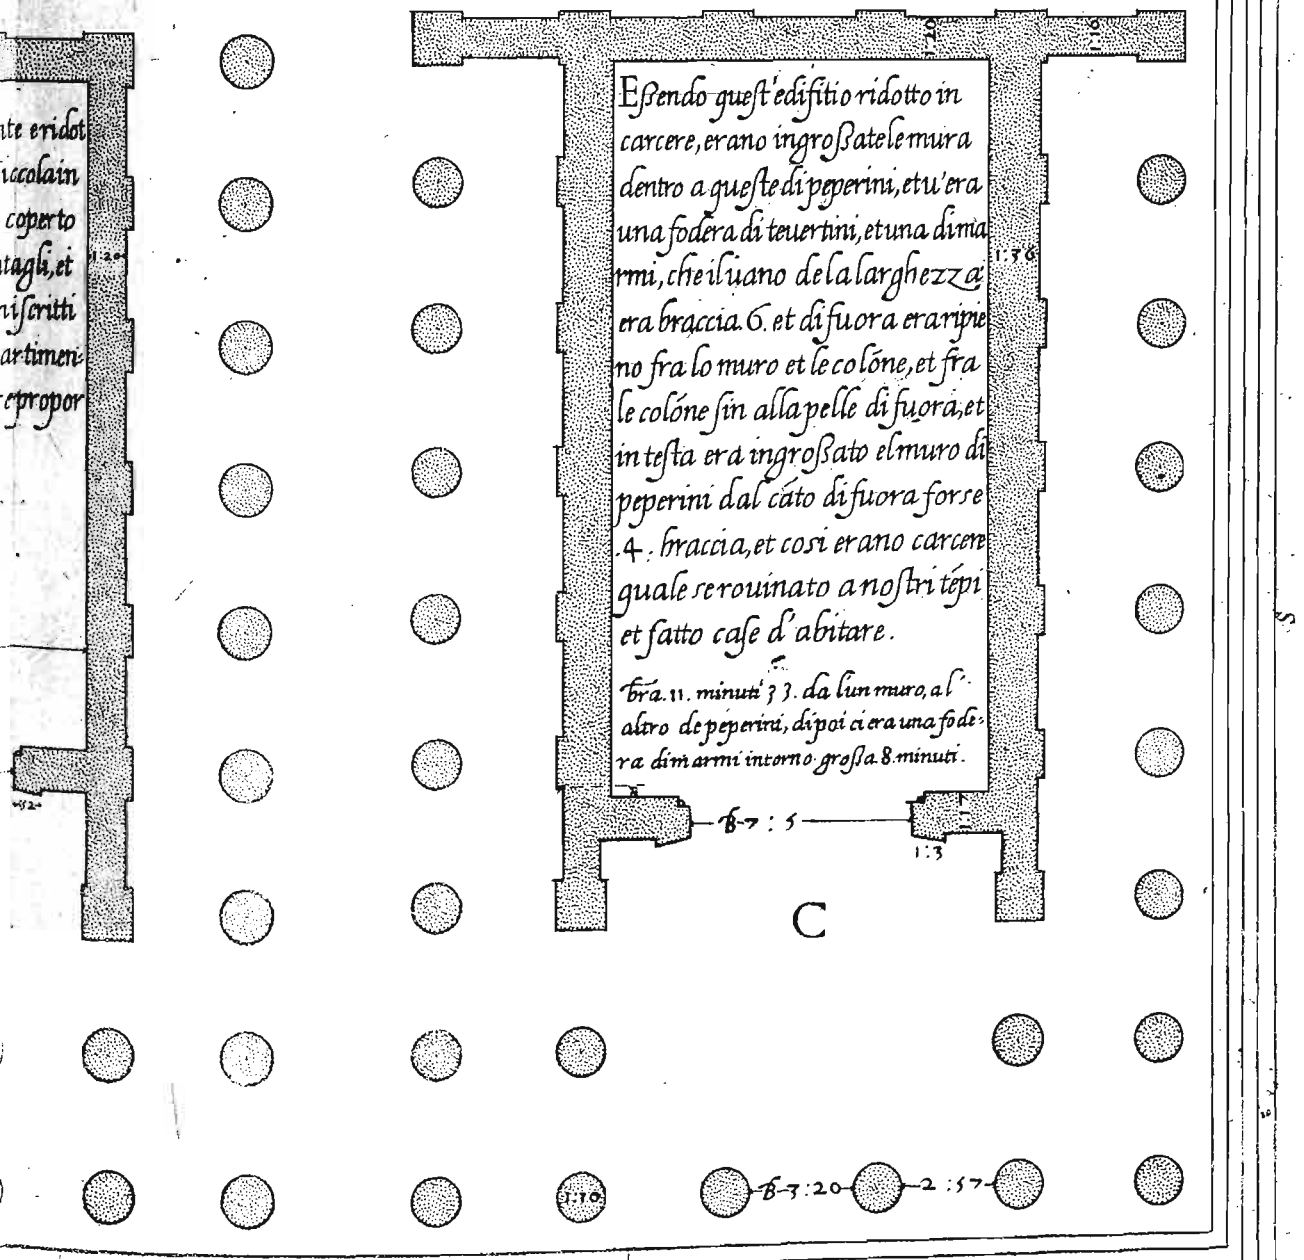 nte eridot
iccolain
coperto
tagli, et
niscritti
artimen:
epropor
1:20
52
Eßendo quest'edifitio ridotto in
carcere, erano ingroßate le mura
dentro a queste di peperini, et u'era
una fodera di teuertini, et una di ma
rmi, che il uano de la larghezza
era braccia. 6. et di fuora era ripie
no fra lo muro et le colóne, et fra
le colóne sin alla pelle di fuora, et
in testa era ingroßato el muro di
peperini dal cáto di fuora forse
.4. braccia, et cosi erano carcere
quale se rouinato a nostri tépi
et fatto case d'abitare.
bra. 11. minuti 33. da l'un muro, a l'
altro de peperini, di poi ci era una fode:
ra di marmi intorno großa 8. minuti.
1:20
1:10
1:36
8
B 7 : 5
1:17
1:3
C
1:10
B 3:20
2 :57
S